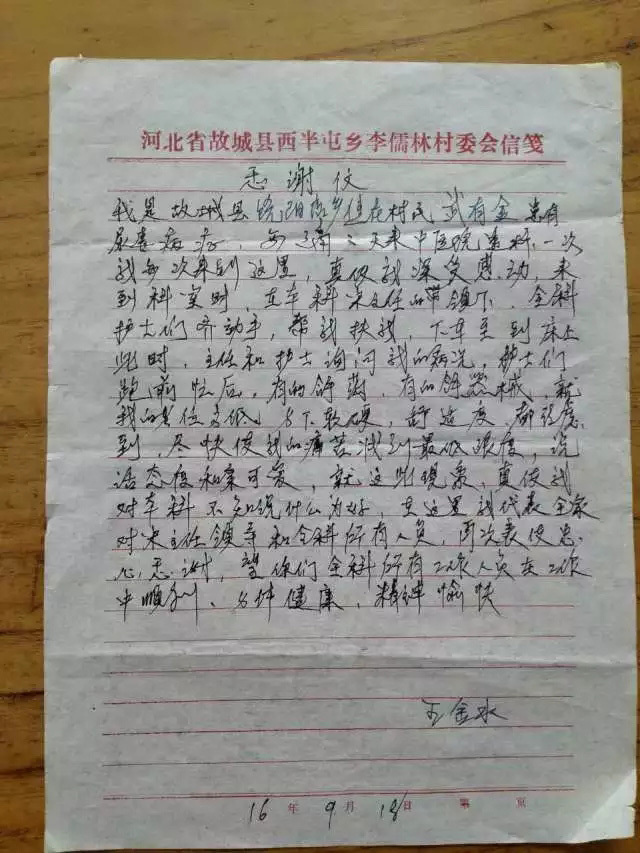 河北省故城县西半屯乡李儒林村委会信笺
感谢仪
我是故城县饶阳店乡住在村民武有金患有
尿毒病症,每隔二天来中医院透析一次
我每次来到这里,真使我深受感动,来
到科室时,在本科宋主任的带领下,全科
护士们齐动手,帮我扶我,下车至到床上
此时,主任和护士询问我的病况,护士们
跑前忙后,有的备药,有的备器械,就
我的坐位高低,上下软硬,舒适度,都弄感
到,尽快使我的痛苦减到最低限度,说
话态度和柔可爱,就这些现象,真使我
对本科不知说什么为好,在这里我代表全家
对宋主任领导和全科所有人员,再次表使忠
心感谢,望你们全科所有工作人员在工作
中顺利、身体健康,精神愉快
王金水
16年9月18日 第 页